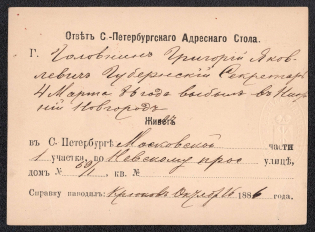 Отвѣтъ С.-Петербургскаго Адреснаго Стола.
Г. Головкинъ Григорій Яков-
левичъ Губернскій Секретарь
4 Марта 86 года выбылъ въ Ниж-
ній Новгородъ
Живетъ
въ С. Петербургѣ Московской части
1 участка, по Невскому прос улицѣ,
домъ № кв. №
Справку наводилъ: 1886 года.